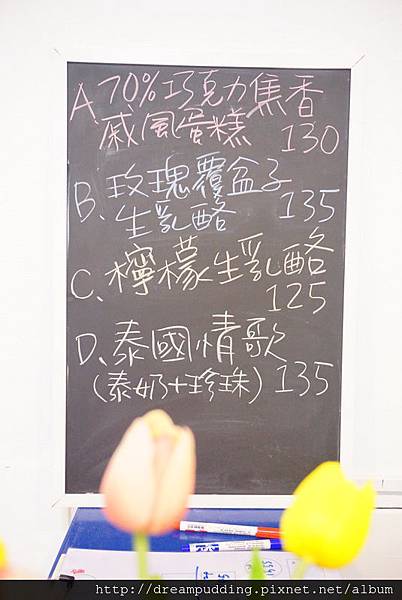 A 70%巧克力焦香
戚風蛋糕 130
B、玫瑰覆盆子
生乳酪 135
C、檸檬生乳酪
125
D、泰國情歌
(泰奶+珍珠) 135
http://dreampudding.pixnet.net/album